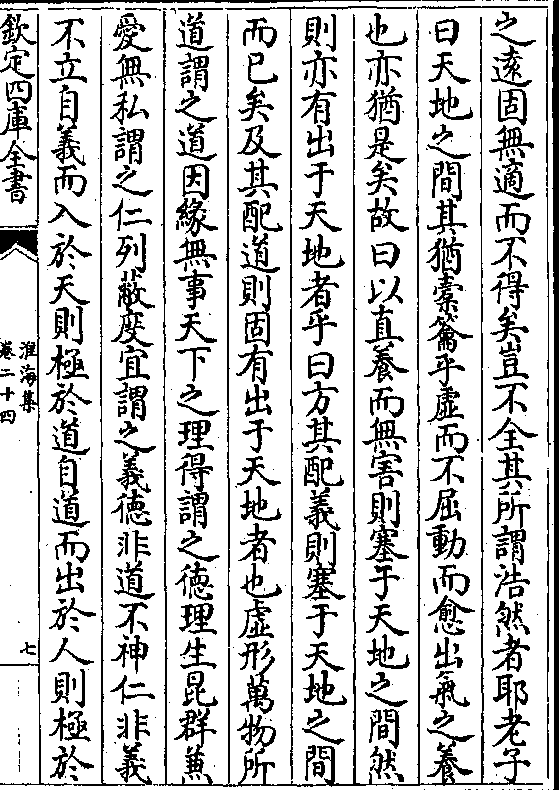 之遠固無適而不得矣豈不全其所謂浩然者耶老子
曰天地之間其猶橐籥乎虛而不屈動而愈出氣之養
也亦猶是矣故曰以直養而無害則塞于天地之間然
則亦有出于天地者乎曰方其配義則塞于天地之間
而已矣及其配道則固有出于天地者也虛形萬物所
道謂之道因緣無事天下之理得謂之德理生昆群兼
愛無私謂之仁列蔽度宜謂之義德非道不神仁非義
不立自義而入於天則極於道自道而出於人則極於
欽定四庫全書
淮海集
卷二十四
七